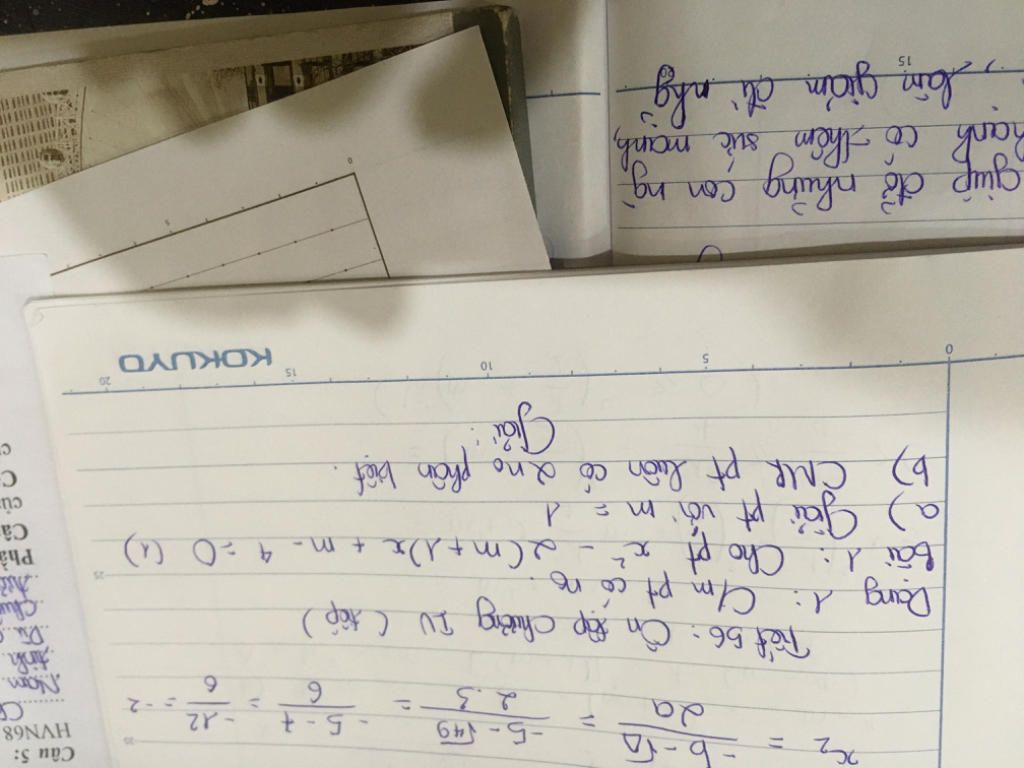 x₂ = -b-√Δ / 2a = -5-√49 / 2.3 = -5-7 / 6 = -12 / 6 = -2
Tiết 56: Ôn tập chương IV (tiếp)
Dạng 1: C/m pt có no.
Bài 1: Cho pt x² - 2(m+1)x + m - 4 = 0 (1)
a) Giải pt với m = 1
b) CMR pt luôn có 2 no phân biệt.
Giải:
0 5 10 15 20
KOKUYO
giúp đỡ những con ng
có thêm sức mạnh,
làm giảm đi nhg
15
0
5
Câu 5:
HVN68
Năm